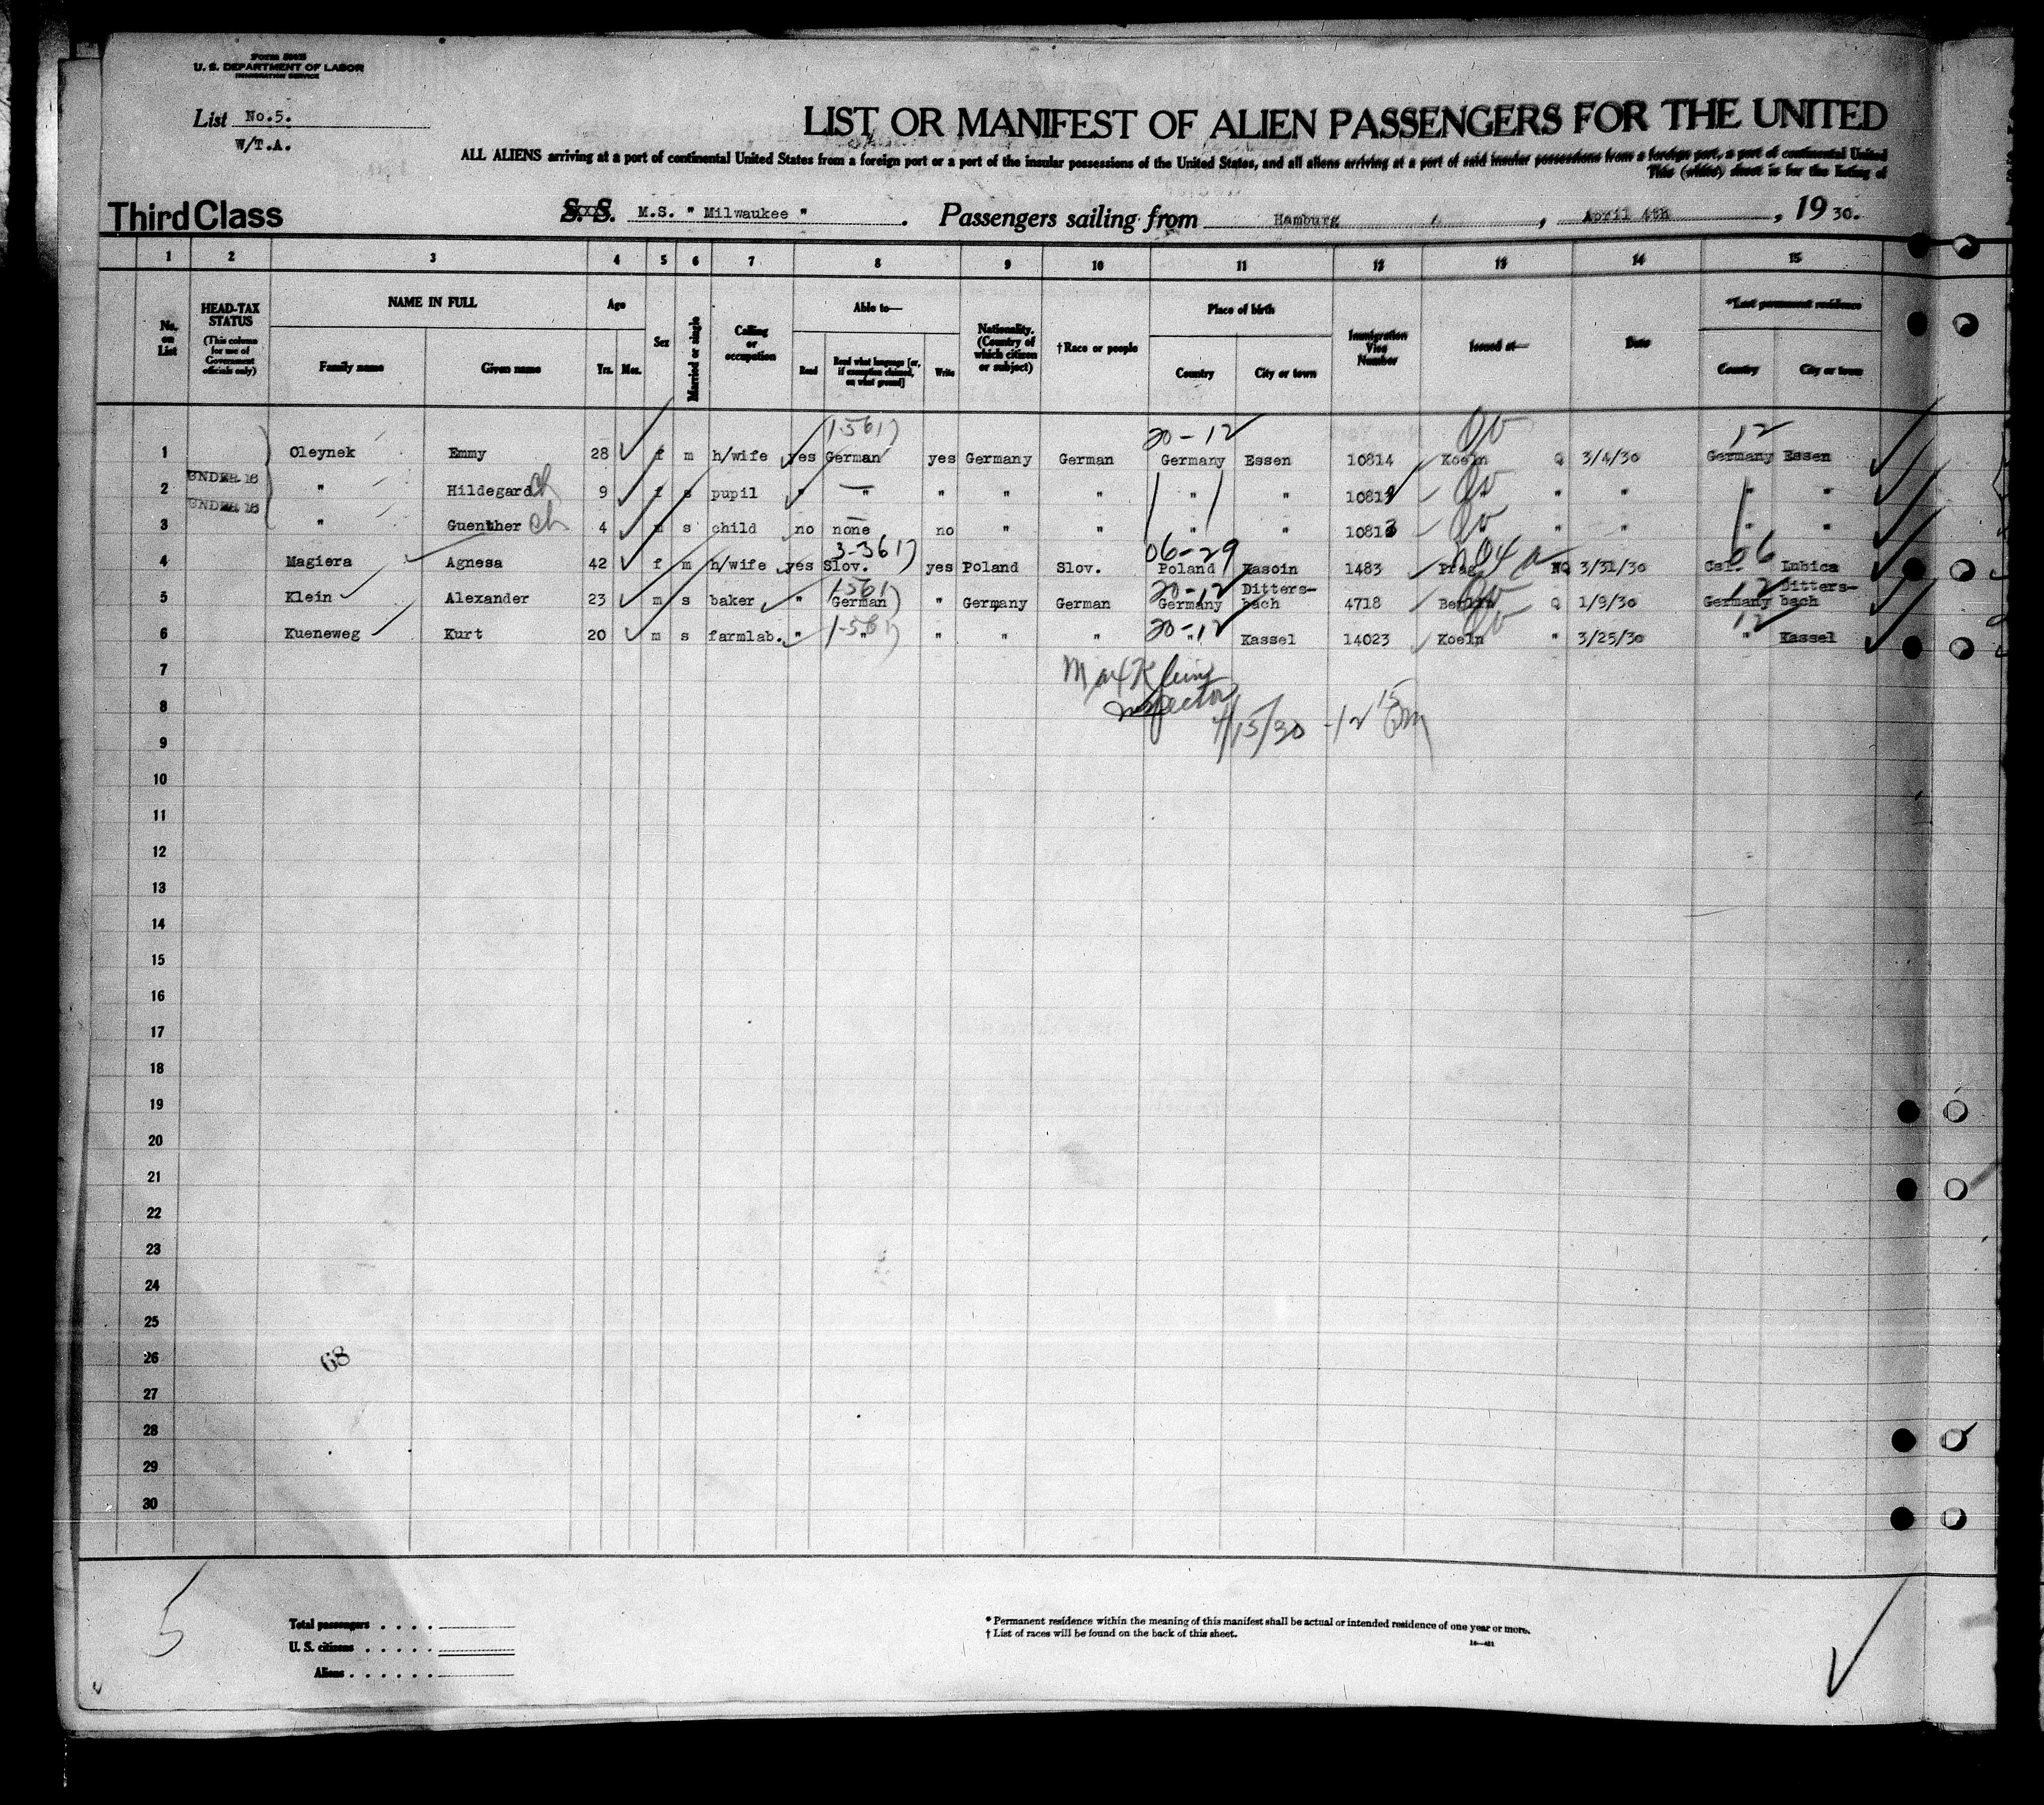 Form 500B
U. S. DEPARTMENT OF LABOR
IMMIGRATION SERVICE
List No.5.
W/T.A.
LIST OR MANIFEST OF ALIEN PASSENGERS FOR THE UNITED
ALL ALIENS arriving at a port of continental United States from a foreign port or a port of the insular possessions of the United States, and all aliens arriving at a port of said insular possessions from a foreign port, a port of continental United
This (white) sheet is for the listing of
Third Class S. S. M.S. " Milwaukee ". Passengers sailing from Hamburg, April 4th, 19 30.
1 2 3 4 5 6 7 8 9 10 11 12 13 14 15
No. on List
HEAD-TAX STATUS (This column for use of Government officials only)
NAME IN FULL Family name Given name
Age Yrs. Mos.
Sex
Married or single
Calling or occupation
Able to— Read Read what language [or, if exemption claimed, on what ground] Write
Nationality. (Country of which citizen or subject)
†Race or people
Place of birth Country City or town
Immigration Visa Number
Issued at—
Date
*Last permanent residence Country City or town
1-561) 20-12 12
1 Oleynek Emmy 28 f m h/wife yes German yes Germany German Germany Essen 10814 Koeln Q 3/4/30 Germany Essen
UNDER 16
2 " Hildegard ch 9 f s pupil " " " " " " " " " " " "
UNDER 16
3 " Guenther ch 4 s child no none no " " " " 10813 " " " " "
3-361) 06-29 06
4 Magiera Agnesa 42 f m h/wife yes Slov. yes Poland Slov. Poland Kasoin 1483 Prag NQ 3/31/30 Csl. Lubica
1-561) 20-12 Ditters- 12 Ditters-
5 Klein Alexander 23 m s baker " German " Germany German Germany bach 4718 Berlin Q 1/9/30 Germany bach
1-561) 20-12 12
6 Kueneweg Kurt 20 m s farmlab. " " " " " " Kassel 14023 Koeln " 3/25/30 " Kassel
7
Max Klein
8
Inspector
4/15/30 -12 15
9
10
11
12
13
14
15
16
17
18
19
20
21
22
23
24
25
26
68
27
28
29
30
5
Total passengers . . . .
U. S. citizens . . . . .
Aliens . . . . . .
* Permanent residence within the meaning of this manifest shall be actual or intended residence of one year or more.
† List of races will be found on the back of this sheet.